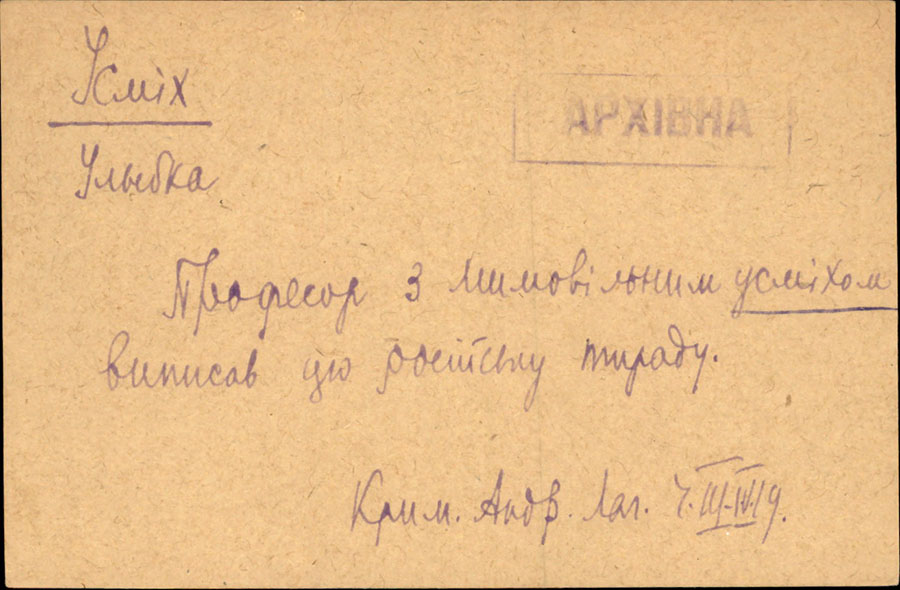 Усміх
АРХІВНА
Улыбка
Професор з мимовільним усміхом
виписав цю російську тираду.
Крим. Андр. Лаг. Ч. III-IV. 19.